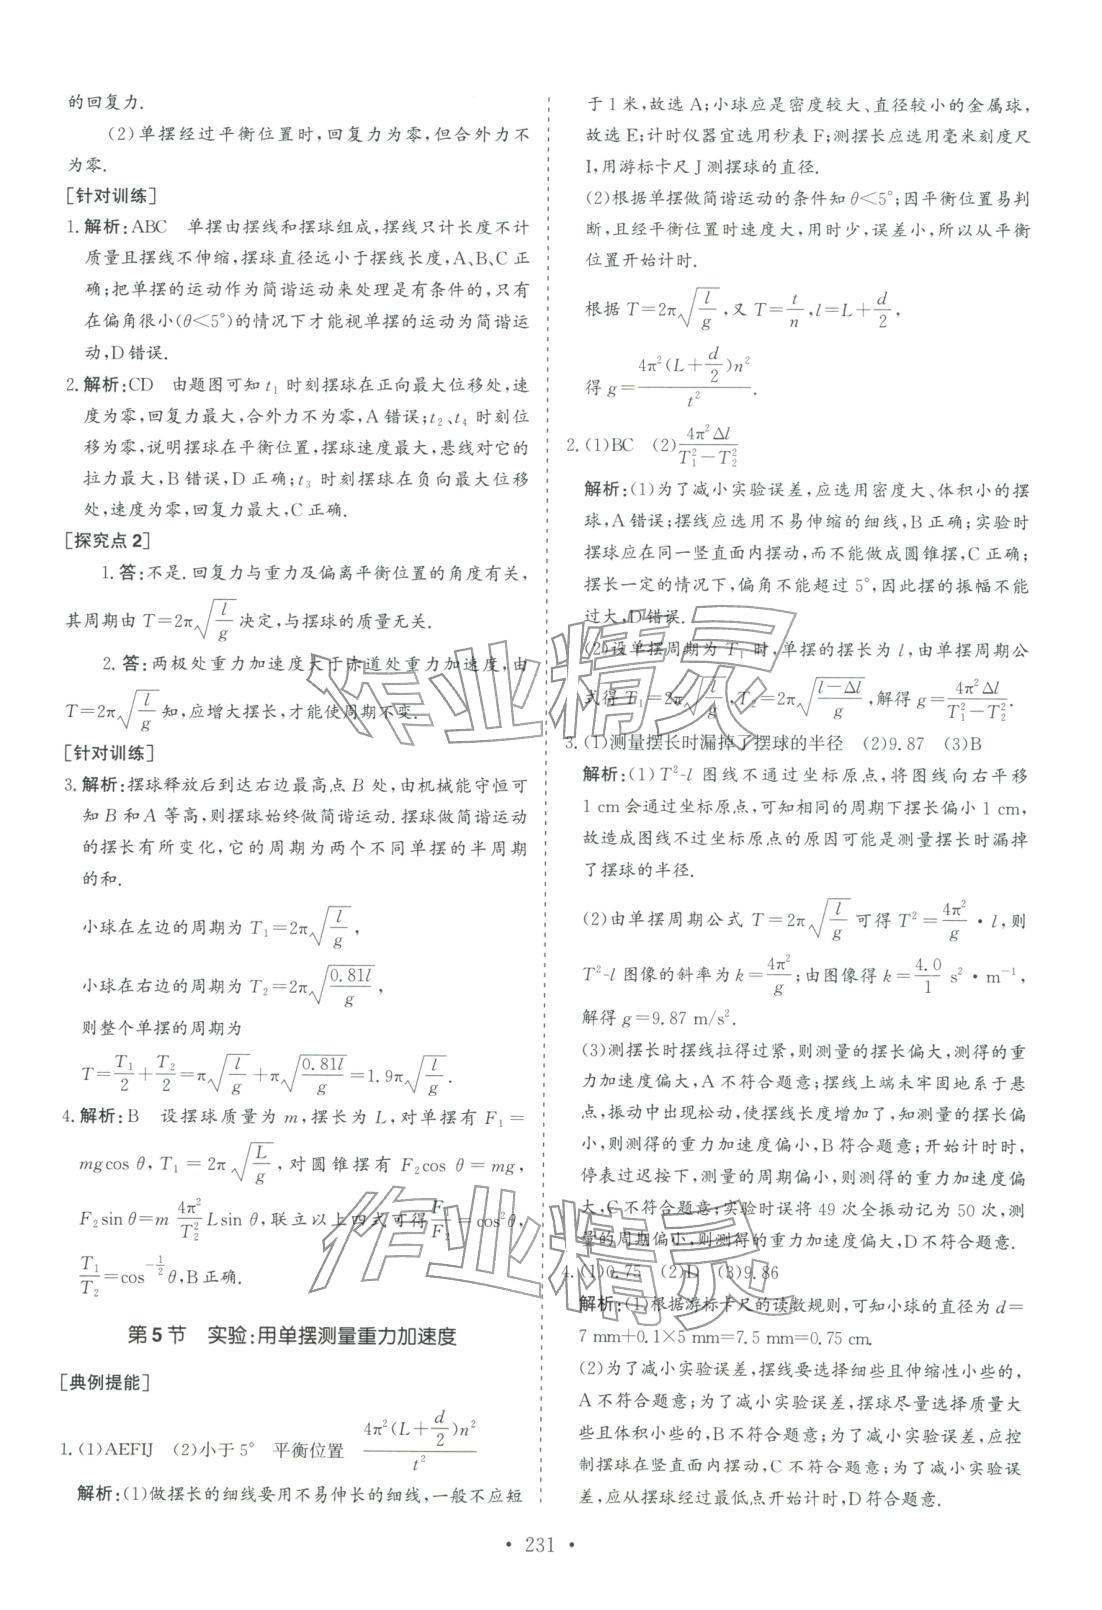 的回复力.
(2)单摆经过平衡位置时,回复力为零,但合外力不
为零.
[针对训练]
1.解析:ABC 单摆由摆线和摆球组成,摆线只计长度不计
质量且摆线不伸缩,摆球直径远小于摆线长度,A、B、C正
确;把单摆的运动作为简谐运动来处理是有条件的,只有
在偏角很小(θ<5°)的情况下才能视单摆的运动为简谐运
动,D错误.
2.解析:CD 由题图可知 t₁ 时刻摆球在正向最大位移处,速
度为零,回复力最大,合外力不为零,A错误;t₂、t₄ 时刻位
移为零,说明摆球在平衡位置,摆球速度最大,悬线对它的
拉力最大,B错误,D正确;t₃ 时刻摆球在负向最大位移
处,速度为零,回复力最大,C正确.
[探究点2]
1.答:不是.回复力与重力及偏离平衡位置的角度有关,
其周期由 T=2π√(l/g) 决定,与摆球的质量无关.
2.答:两极处重力加速度大于赤道处重力加速度,由
T=2π√(l/g) 知,应增大摆长,才能使周期不变.
[针对训练]
3.解析:摆球释放后到达右边最高点 B 处,由机械能守恒可
知 B 和 A 等高,则摆球始终做简谐运动.摆球做简谐运动
的摆长有所变化,它的周期为两个不同单摆的半周期
的和.
小球在左边的周期为 T₁=2π√(l/g),
小球在右边的周期为 T₂=2π√(0.81l/g)
则整个单摆的周期为
T=T₁/2+T₂/2=π√(l/g)+π√(0.81l/g)=1.9π√(l/g).
4.解析:B 设摆球质量为 m,摆长为 L,对单摆有 F₁=
mgcos θ,T₁=2π√(L/g),对圆锥摆有 F₂cos θ=mg,
F₂sin θ=m (4π²/T₂²) Lsin θ,联立以上四式可得 F₁/F₂=cos²θ,
T₁/T₂=cos^(-1/2) θ,B正确.
第5节 实验:用单摆测量重力加速度
[典例提能]
1.(1)AEFIJ (2)小于5° 平衡位置 4π²(L+d/2)n²/t²
解析:(1)做摆长的细线要用不易伸长的细线,一般不应短
于1米,故选A;小球应是密度较大、直径较小的金属球,
故选E;计时仪器宜选用秒表F;测摆长应选用毫米刻度尺
I,用游标卡尺J测摆球的直径.
(2)根据单摆做简谐运动的条件知θ<5°;因平衡位置易判
断,且经平衡位置时速度大,用时少,误差小,所以从平衡
位置开始计时.
根据 T=2π√(l/g),又 T=t/n,l=L+d/2,
得 g=4π²(L+d/2)n²/t².
2.(1)BC (2)4π²Δl/(T₁²-T₂²)
解析:(1)为了减小实验误差,应选用密度大、体积小的摆
球,A错误;摆线应选用不易伸缩的细线,B正确;实验时
摆球应在同一竖直面内摆动,而不能做成圆锥摆,C正确;
摆长一定的情况下,偏角不能超过5°,因此摆的振幅不能
过大,D错误.
(2)设单摆周期为 T₁ 时,单摆的摆长为 l,由单摆周期公
式得 T₁=2π√(l/g),T₂=2π√((l-Δl)/g),解得 g=4π²Δl/(T₁²-T₂²).
3.(1)测量摆长时漏掉了摆球的半径 (2)9.87 (3)B
解析:(1)T²-l 图线不通过坐标原点,将图线向右平移
1 cm会通过坐标原点,可知相同的周期下摆长偏小1 cm,
故造成图线不过坐标原点的原因可能是测量摆长时漏掉
了摆球的半径.
(2)由单摆周期公式 T=2π√(l/g) 可得 T²=4π²/g·l,则
T²-l 图像的斜率为 k=4π²/g;由图像得 k=4.0/1 s²·m⁻¹,
解得 g=9.87 m/s².
(3)测摆长时摆线拉得过紧,则测量的摆长偏大,测得的重
力加速度偏大,A不符合题意;摆线上端未牢固地系于悬
点,振动中出现松动,使摆线长度增加了,知测量的摆长偏
小,则测得的重力加速度偏小,B符合题意;开始计时时,
停表过迟按下,测量的周期偏小,则测得的重力加速度偏
大,C不符合题意;实验时误将49次全振动记为50次,测
量的周期偏小,则测得的重力加速度偏大,D不符合题意.
4.(1)0.75 (2)D (3)9.86
解析:(1)根据游标卡尺的读数规则,可知小球的直径为 d=
7 mm+0.1×5 mm=7.5 mm=0.75 cm.
(2)为了减小实验误差,摆线要选择细些且伸缩性小些的,
A不符合题意;为了减小实验误差,摆球尽量选择质量大
些且体积小些的,B不符合题意;为了减小实验误差,应控
制摆球在竖直面内摆动,C不符合题意;为了减小实验误
差,应从摆球经过最低点开始计时,D符合题意.
作业精灵
作业精灵
·231·